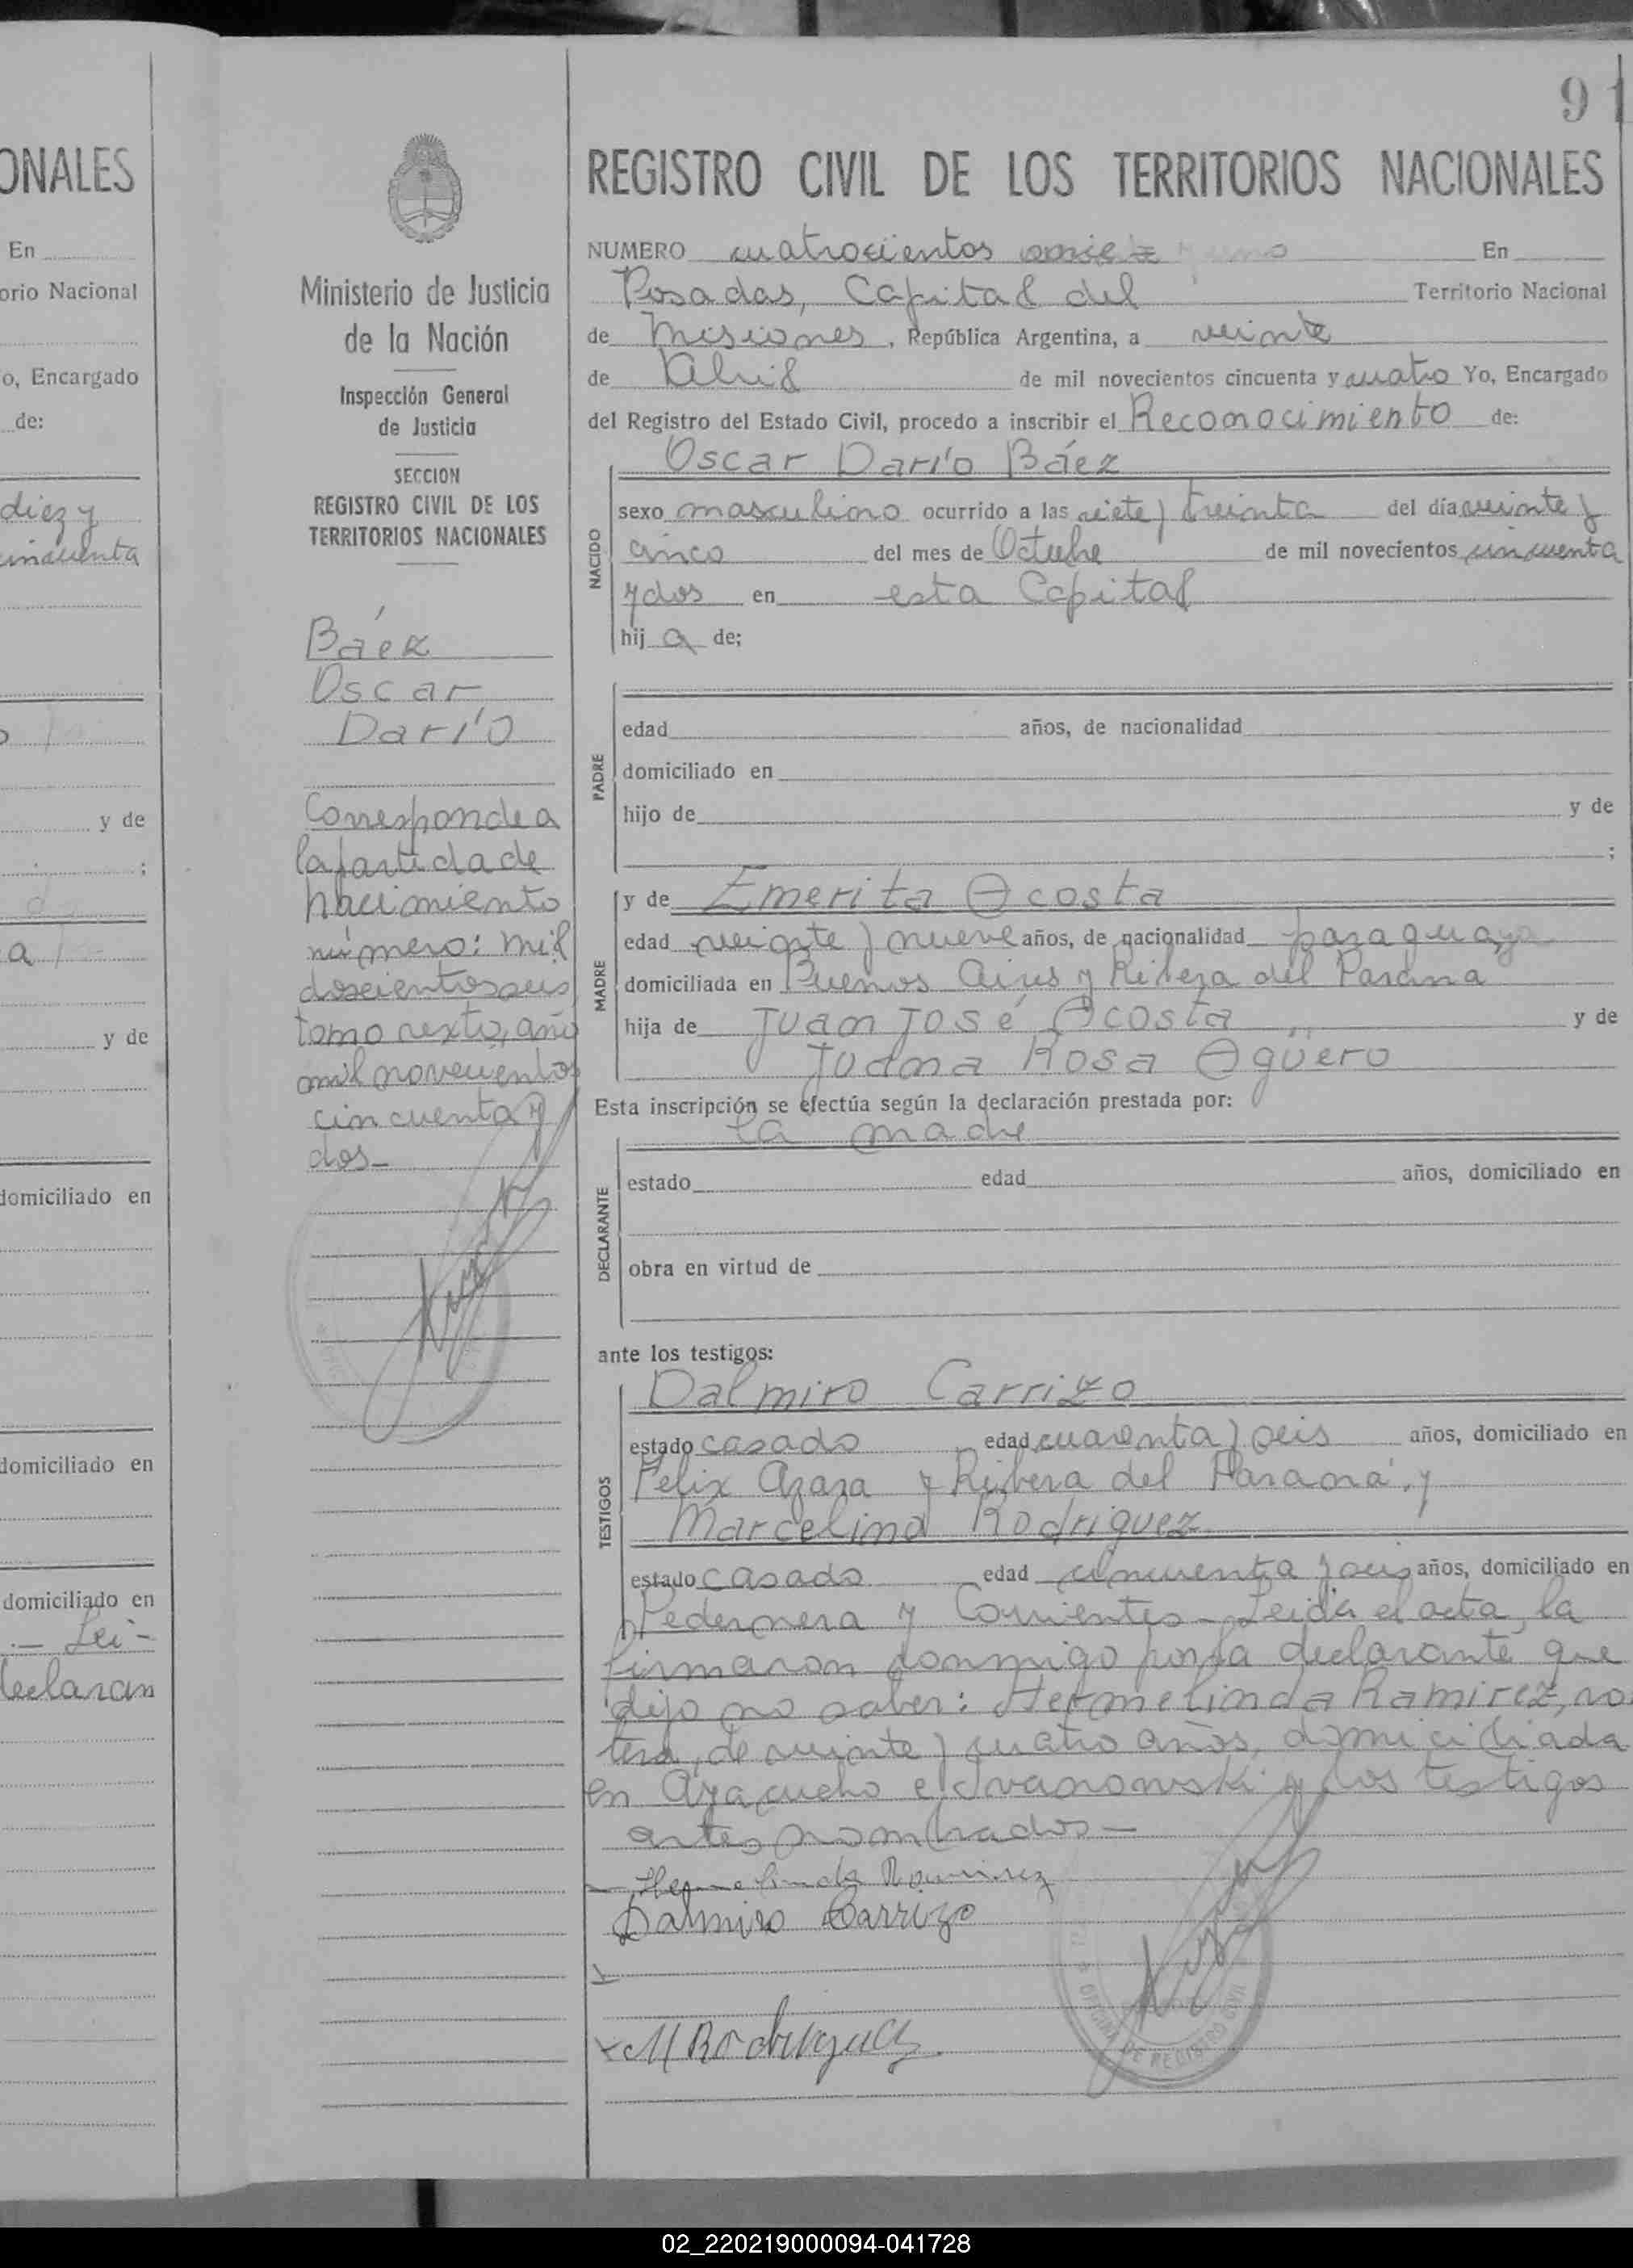 91
ONALES
En
orio Nacional
o, Encargado
de:
diez y
cincuenta
y de
a
y de
domiciliado en
domiciliado en
domiciliado en
.— Lei-
declaran
Ministerio de Justicia
de la Nación
Inspección General
de Justicia
SECCION
REGISTRO CIVIL DE LOS
TERRITORIOS NACIONALES
Báez
Oscar
Darío
Corresponde a
la partida de
nacimiento
número: mil
doscientos seis
tomo sexto, año
mil novecientos
cincuenta y
dos—
REGISTRO CIVIL DE LOS TERRITORIOS NACIONALES
NUMERO cuatrocientos En
Posadas, Capital del Territorio Nacional
de Misiones, República Argentina, a veinte
de Abril de mil novecientos cincuenta y cuatro Yo, Encargado
del Registro del Estado Civil, procedo a inscribir el Reconocimiento de:
Oscar Darío Báez
NACIDO
sexo masculino ocurrido a las siete y treinta del día veinte y
cinco del mes de Octubre de mil novecientos cincuenta
y dos en esta Capital
hij a de;
PADRE
edad años, de nacionalidad
domiciliado en
hijo de y de
;
MADRE
y de Emerita Acosta
edad veinte y nueve años, de nacionalidad paraguaya
domiciliada en Buenos Aires y Ribera del Paraná
hija de Juan José Acosta y de
Juana Rosa Agüero
Esta inscripción se efectúa según la declaración prestada por:
la madre
DECLARANTE
estado edad años, domiciliado en
obra en virtud de
ante los testigos:
TESTIGOS
Dalmiro Carrizo
estado casado edad cuarenta y seis años, domiciliado en
Felix Azara y Ribera del Paraná, y
Marcelino Rodriguez
estado casado edad cincuenta y seis años, domiciliado en
Pedernera y Corrientes — Leida el acta, la
firmaron conmigo por la declarante que
dijo no saber: Hermelinda Ramirez, sol
tera, de veinte y cuatro años, domiciliada
en Ayacucho e Ivanowski y los testigos
antes nombrados—
Hermelinda Ramirez
Dalmiro Carrizo
M Rodriguez
OFICINA DE REGISTRO CIVIL
02_220219000094-041728